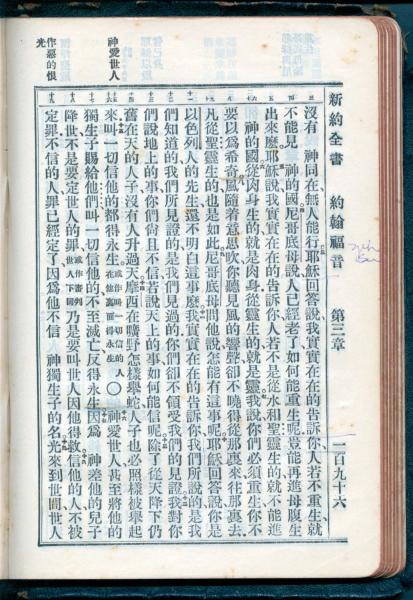 新約全書　約翰福音　第三章　二百九十六
沒有　神同在無人能行耶穌回答說我實實在在的告訴你人若不重生就
不能見　神的國尼哥底母說人已經老了如何能重生呢豈能再進母腹生
出來麼耶穌說我實實在在的告訴你人若不是從水和聖靈生的就不能進
神的國從肉身生的就是肉身從靈生的就是靈我說你們必須重生你不
要以爲希奇風隨着意思吹你聽見風的響聲卻不曉得從那裏來往那裏去
凡從聖靈生的也是如此尼哥底母問他說怎能有這事呢耶穌回答說你是
以色列人的先生還不明白這事麼我實實在在的告訴你我們所說的是我
們知道的我們所見證的是我們見過的你們卻不領受我們的見證我對你
們說地上的事你們尚且不信若說天上的事如何能信呢除了從天降下仍
舊在天的人子沒有人升過天摩西在曠野怎樣舉蛇人子也必照樣被舉起
來叫一切信他的都得永生或作叫一切信的人在他裏面得永生〇　神愛世人甚至將他的
神愛世人
獨生子賜給他們叫一切信他的不至滅亡反得永生因爲　神差他的兒子
降世不是要定世人的罪或作審判世人下同乃是要叫世人因他得救信他的人不被
定罪不信的人罪已經定了因爲他不信　神獨生子的名光來到世間世人
作惡的恨
光